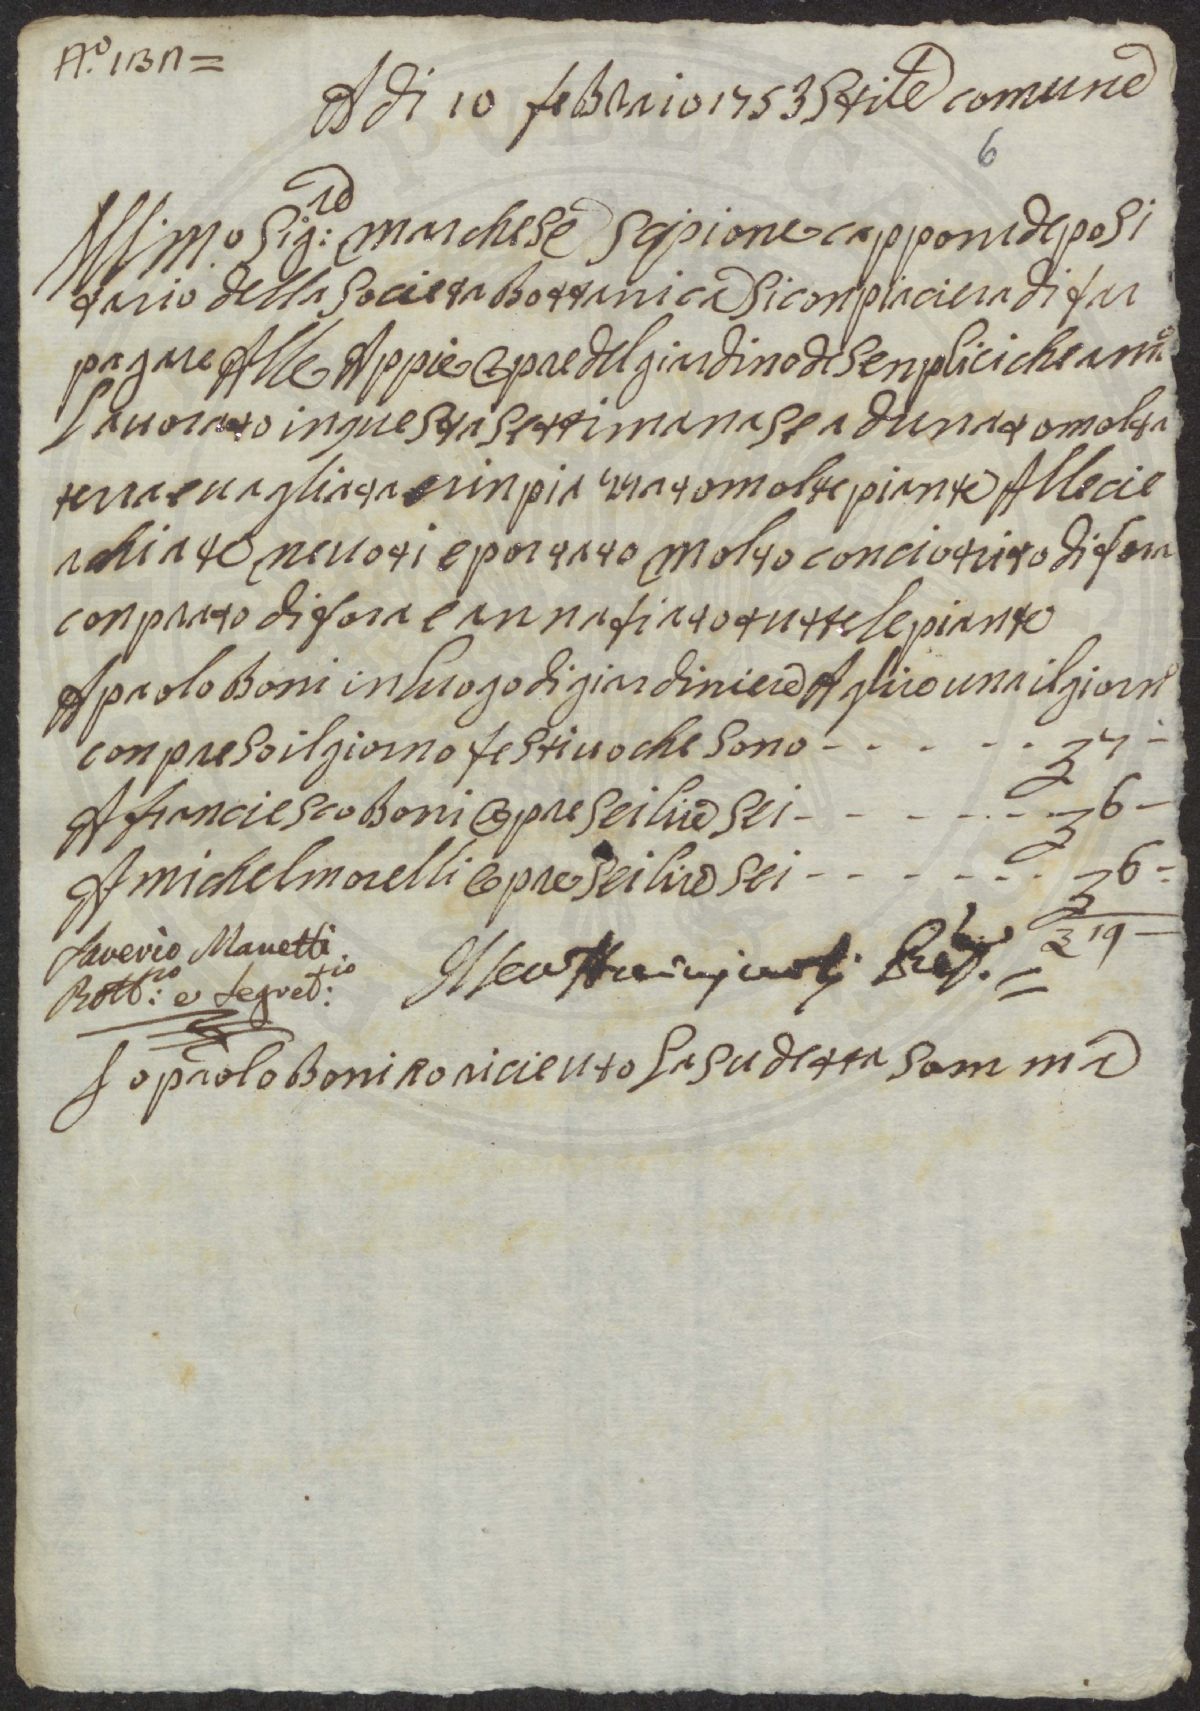 A.º 137 =
Adi 10 febraio 1753 Stile comune
6
Illimo Sig:re marchese Scipione capponi deposi
tario della Societa Bottanica Si conpiaciera di far
pagare Alle Appie opre del giardino de Senplici che ano
Lauorato in questa Settimana Se adunato molta
terra e uagliata e rinpiazzato molte piante Alle cie
rchiate ne uoti e portato molto concio trito di fora
conprato di fora e annafiato tutte le piante
A paolo Boni in luogo di giardiniere A lire una il giorno
conpreso il giorno festiuo che sono - - - - - - 7 -
A franciesco Boni opre Sei lire Sei - - - - - - 6 -
A michel morelli opre Sei lire Sei - - - - - - 6 -
19 -
Saverio Manetti
e Segret:io
Io paolo Boni o riceuto La sudetta Somma